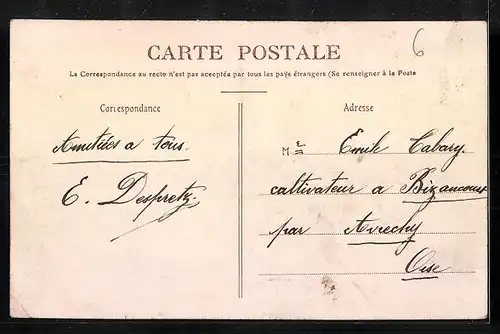 6
CARTE POSTALE
La Correspondance au recto n'est pas acceptée par tous les pays étrangers (Se renseigner à la Poste
Correspondance
Adresse
Amitiés a tous
E. Despretz
Mr Emile Cabary
cultivateur a Bizancourt
par Avrechy
Oise